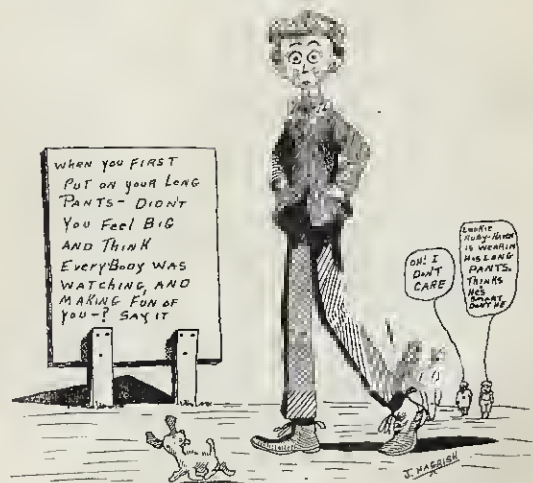 WHEN YOU FIRST
PUT ON YOUR LONG
PANTS- DIDN'T
YOU FEEL BIG
AND THINK
EVERYBODY WAS
WATCHING, AND
MAKING FUN OF
YOU-? SAY IT
OH! I
DON'T
CARE
LOOKIE
IS WEARIN
HIS LONG
PANTS.
THINKS
HE'S
SMART
DON'T HE